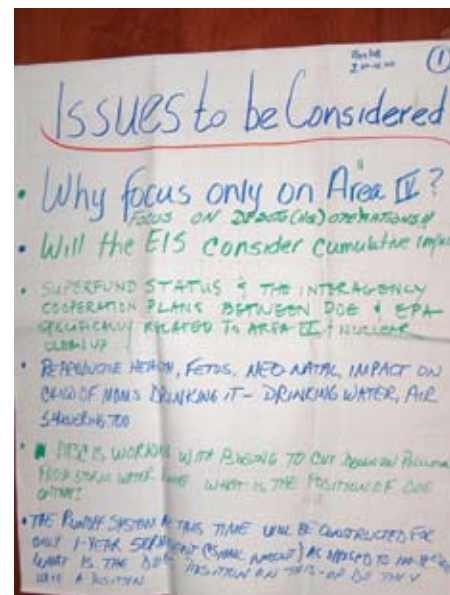 ①
Issues to be Considered
• Why focus only on Area IV?
FOCUS ON OPERATIONS
• Will the EIS consider cumulative
• SUPERFUND STATUS & THE INTERAGENCY
COOPERATION PLANS BETWEEN DOE & EPA
SPECIFICALLY RELATED TO AREA IV & NUCLEAR
CLEANUP
• HEALTH, FETUS, NEO-NATAL, IMPACT ON
CHILD OF MOMS DRINKING IT - DRINKING WATER, AIR
SHOWERING TOO
• IS WORKING WITH BOEING TO CUT DOWN ON
FROM STORM WATER WHAT IS THE POSITION OF DOE
• THE RUNOFF SYSTEM AT THIS TIME WILL BE CONSTRUCTED FOR
ONLY 1-YEAR (SMALL AMOUNT) AS OPPOSED TO
WHAT IS THE POSITION ON THIS - OR DO THEY
HAVE A POSITION